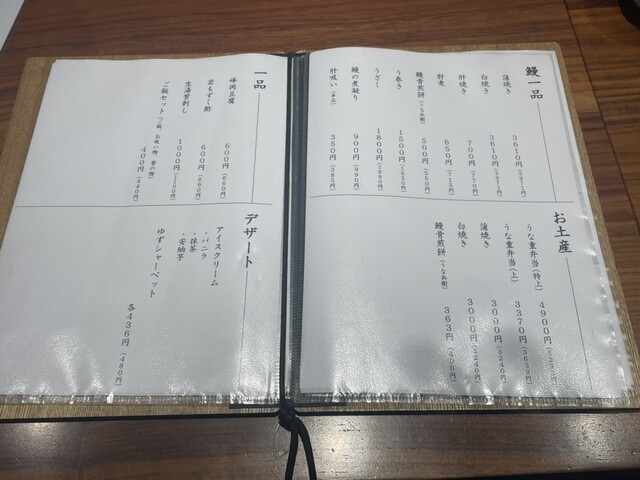 鰻一品
蒲焼き 3610円(3971円)
白焼き 3610円(3971円)
肝焼き 700円(770円)
肝煮 650円(715円)
鰻骨煎餅(うな兵衛) 500円(550円)
う巻き 1500円(1650円)
うざく 1800円(1980円)
鰻の煮凝り 900円(990円)
肝吸い(単品) 350円(385円)
お土産
うな重弁当(特上) 4900円
うな重弁当(上) 3370円(3639円)
蒲焼き 3000円(3240円)
白焼き 3000円(3240円)
鰻骨煎餅(うな兵衛) 363円(400円)
一品
峰岡豆腐 600円(660円)
岩もずく酢 600円(660円)
生湯葉刺し 1000円(1100円)
ご飯セット(ご飯、お吸い物、香の物) 400円(440円)
デザート
アイスクリーム
・バニラ
・抹茶
・安納芋
ゆずシャーベット
各436円(480円)